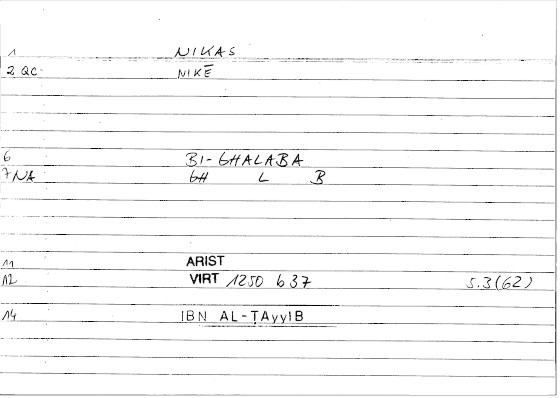 1 NIKAS
2 QC NIKĒ
6 BI-GHALABA
7 NA GH L B
11 ARIST
12 VIRT 1250 b 37 5.3(62)
14 IBN AL-ṬAyyIB